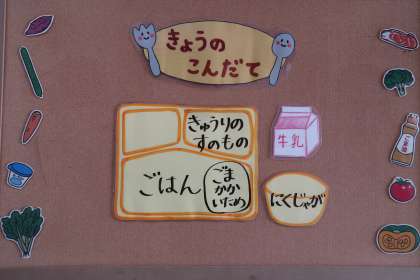 きょうの
こんだて
きゅうりの
すのもの
牛乳
ごはん
ごま
かか
いため
にくじゃが